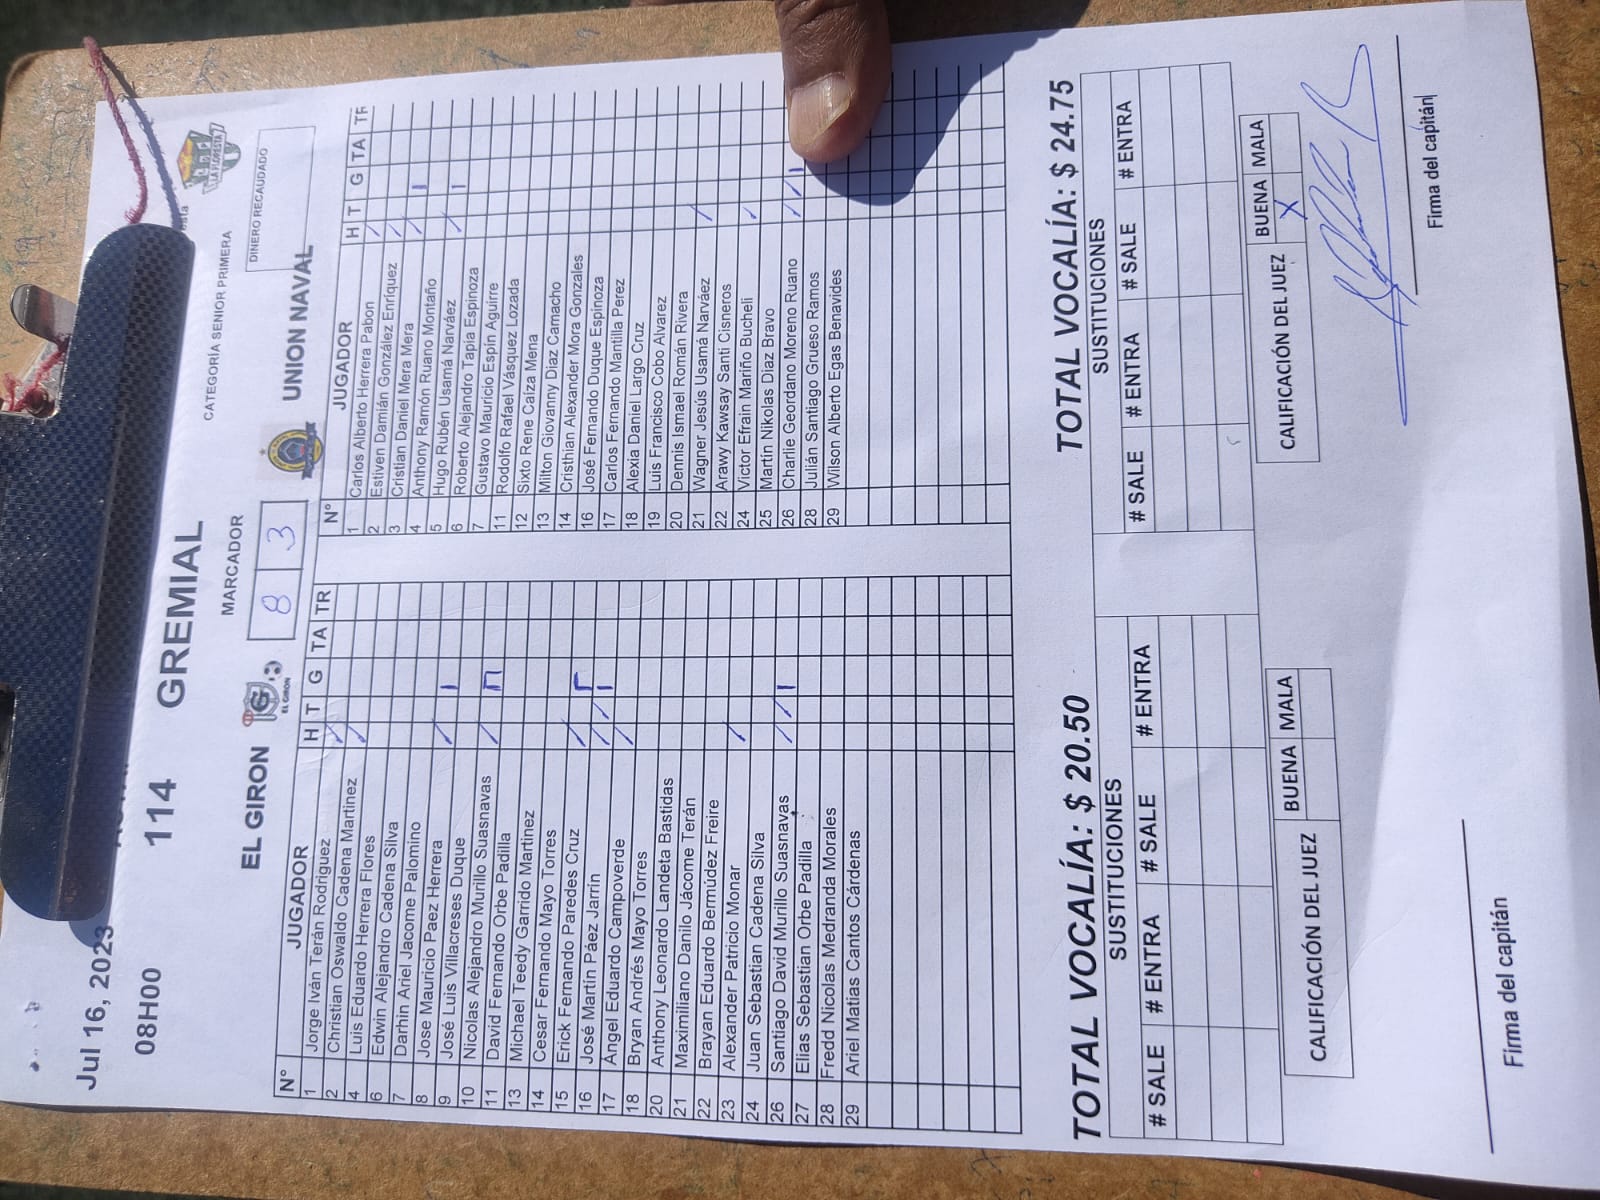 Jul 16, 2023
08H00 114 GREMIAL
CATEGORÍA SENIOR PRIMERA
LA FLORESTA
MARCADOR
DINERO RECAUDADO
EL GIRON EL GIRON 8 3 UNION NAVAL
N° JUGADOR H T G TA TR
1 Jorge Iván Terán Rodriguez /
2 Christian Oswaldo Cadena Martinez /
4 Luis Eduardo Herrera Flores
6 Edwin Alejandro Cadena Silva
7 Darhin Ariel Jacome Palomino
8 Jose Mauricio Paez Herrera /
9 José Luis Villacreses Duque
10 Nicolas Alejandro Murillo Suasnavas /
11 David Fernando Orbe Padilla
13 Michael Teedy Garrido Martinez
14 Cesar Fernando Mayo Torres
15 Erick Fernando Paredes Cruz /
16 José Martín Páez Jarrín / /
17 Ángel Eduardo Campoverde /
18 Bryan Andrés Mayo Torres
20 Anthony Leonardo Landeta Bastidas
21 Maximiliano Danilo Jácome Terán
22 Brayan Eduardo Bermúdez Freire
23 Alexander Patricio Monar /
24 Juan Sebastian Cadena Silva
26 Santiago David Murillo Suasnavas / /
27 Elias Sebastian Orbe Padilla
28 Fredd Nicolas Medranda Morales
29 Ariel Matías Cantos Cárdenas
N° JUGADOR H T G TA TR
1 Carlos Alberto Herrera Pabon /
2 Estiven Damián González Enríquez /
3 Cristian Daniel Mera Mera /
4 Anthony Ramón Ruano Montaño
5 Hugo Rubén Usamá Narváez /
6 Roberto Alejandro Tapia Espinoza
7 Gustavo Mauricio Espín Aguirre
11 Rodolfo Rafael Vásquez Lozada
12 Sixto Rene Caiza Mena
13 Milton Giovanny Diaz Camacho
14 Cristhian Alexander Mora Gonzales
16 José Fernando Duque Espinoza
17 Carlos Fernando Mantilla Perez
18 Alexia Daniel Largo Cruz
19 Luis Francisco Cobo Alvarez
20 Dennis Ismael Román Rivera
21 Wagner Jesús Usamá Narváez /
22 Arawy Kawsay Santi Cisneros
24 Victor Efrain Mariño Bucheli /
25 Martín Nikolas Diaz Bravo
26 Charlie Geordano Moreno Ruano / /
28 Julián Santiago Grueso Ramos
29 Wilson Alberto Egas Benavides
TOTAL VOCALÍA: $ 20.50
SUSTITUCIONES
# SALE # ENTRA # SALE # ENTRA
CALIFICACIÓN DEL JUEZ BUENA MALA
Firma del capitán
TOTAL VOCALÍA: $ 24.75
SUSTITUCIONES
# SALE # ENTRA # SALE # ENTRA
CALIFICACIÓN DEL JUEZ BUENA MALA
X
Firma del capitán